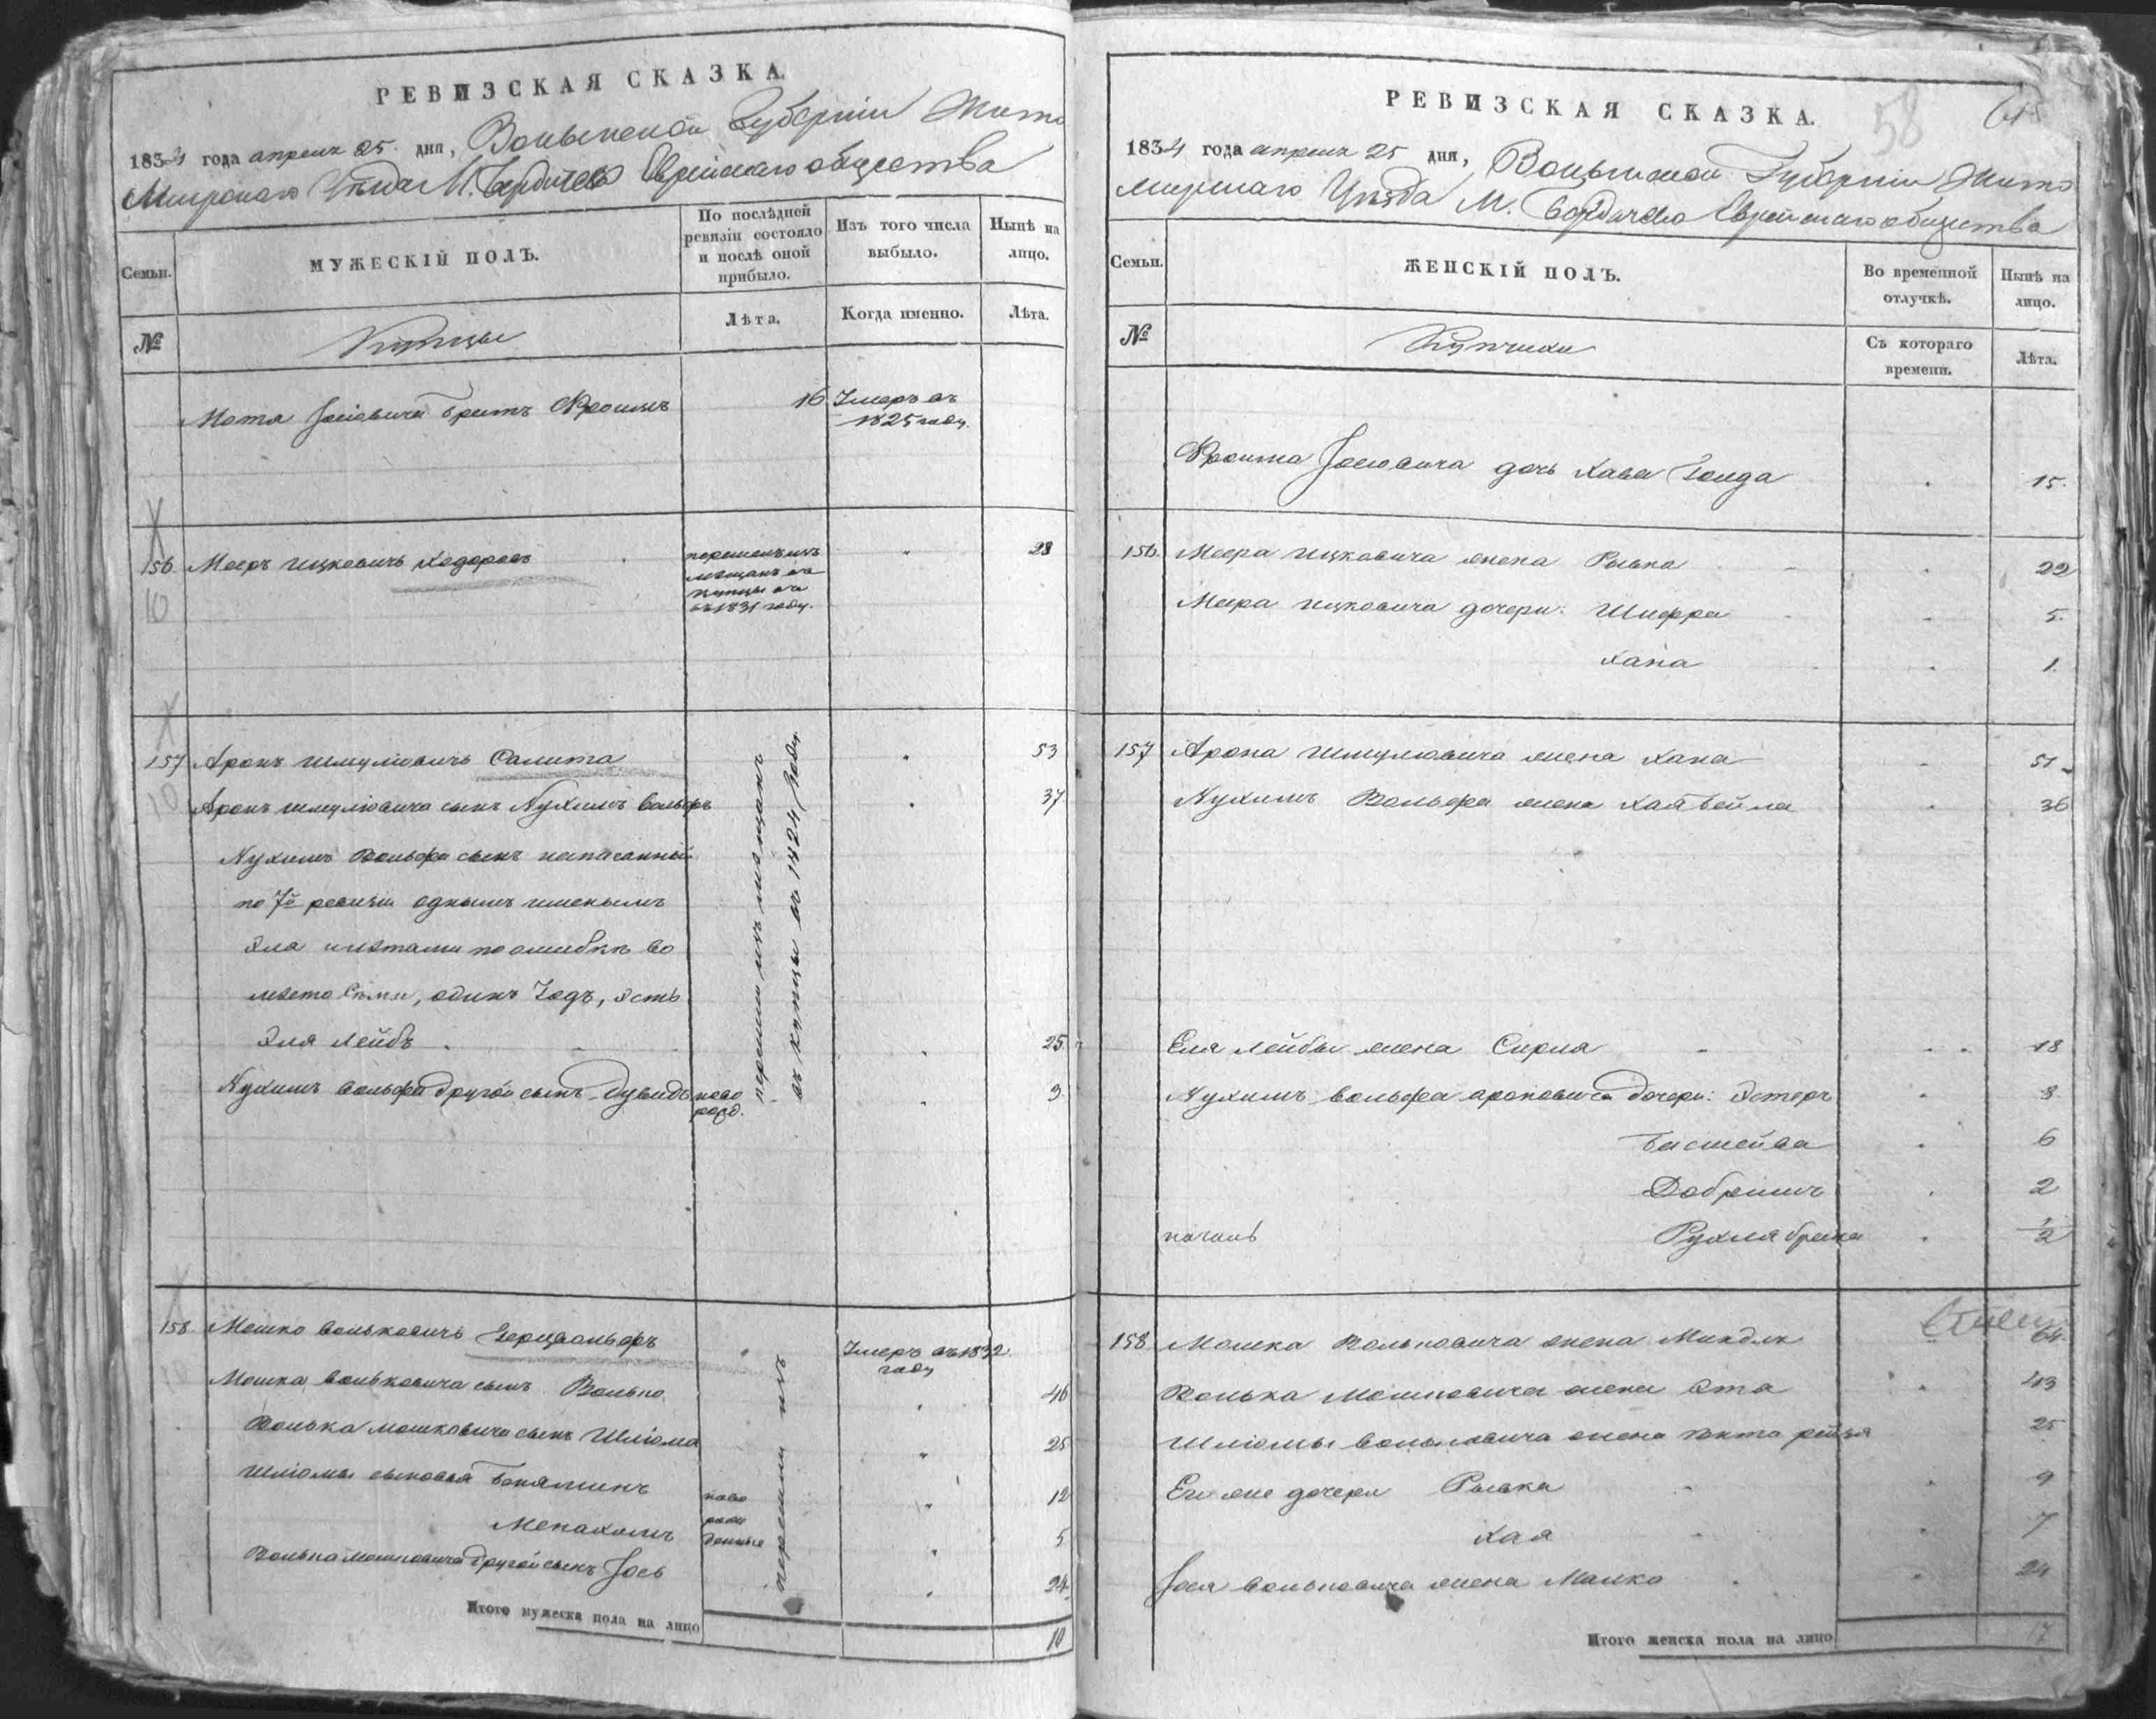 РЕВИЗСКАЯ СКАЗКА.
1834 года апреля 25 дня, Волынской Губерніи Жито
мирскаго Уѣзда М. Бердичева Еврейскаго общества
Семьи.
МУЖЕСКІЙ ПОЛЪ.
По послѣдней ревизіи состояло и послѣ оной прибыло.
Изъ того числа выбыло.
Нынѣ на лицо.
№
Купцы
Лѣта.
Когда именно.
Лѣта.
Мотя Іосіовича братъ Фроимъ 16 Умеръ въ
1825 году.
156 Мееръ Ицковичъ Ходоровъ 28
10
перешелъ изъ
мещанъ въ
купцы
въ 1831 году.
157 Аронъ Шмуліовичъ Салита 53
10 Аронъ Шмуліовича сынъ Нухимъ Вольфъ 37
Нухимъ Вольфа сынъ написанный
по 7й ревизіи однымъ именымъ
Эля и летами по ошибкѣ во
место семи, одинъ годъ, Эсть
Эля Лейбъ 25
Нухимъ Вольфа другой сынъ Дувидъ ново
рожд. 3
перешли изъ мещанъ
въ купцы въ 1824 Году
158 Мошко Вольковичъ Герцвольфъ Умеръ въ 1832
году
Мошка Вольковича сынъ Волько 46
Волька Мошковича сынъ Шліома 25
Шліомы сыновья Беняминъ 12
Менахимъ 5
ново
рож
денные
Волька Мошковича другой сынъ Іось 24
перешли изъ
Итого мужеска пола на лицо 10
РЕВИЗСКАЯ СКАЗКА.
58
1834 года апреля 25 дня, Волынской Губерніи Жито
мирскаго Уѣзда М. Бердичева Еврейскаго общества
Семьи.
ЖЕНСКІЙ ПОЛЪ.
Во временной отлучкѣ.
Нынѣ на лицо.
№
Купчихи
Съ котораго времени.
Лѣта.
Фроима Іосіовича дочь Хава Голда 15
156 Меера Ицковича жена Рывка 22
Меера Ицковича дочери: Шифра 5
Хана 1
157 Арона Шмуліовича жена Хана 51
Нухимъ Вольфа жена Хая Бейла 36
Еля Лейбы жена Сирля 18
Нухимъ Вольфа Ароновича дочери: Эстеръ 8
Басшейва 6
Добришъ 2
Рухля Брана 1/2
158 Мошка Вольковича жена Миндль 64
Волька Мошковича жена Эта 43
Шліомы Вольковича жена 25
Его же дочери Рывка 9
Хая 7
Іося Вольковича жена Малка 24
Итого женска пола на лицо 17